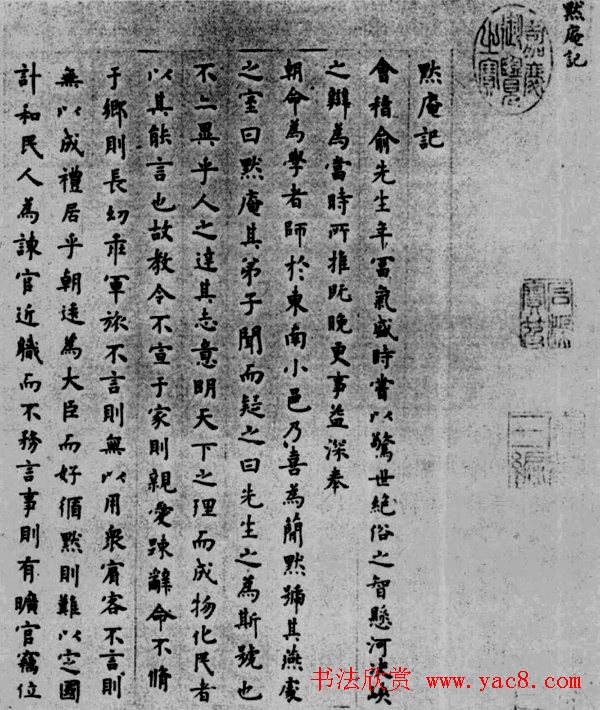 默庵記
嘉慶御覽之寶
默庵記
會稽俞先生年冨氣盛時嘗以驚世絕俗之智懸河決峽
之辯為當時所推既晚更事益深奉
朝命為學者師於東南小邑乃喜為簡默號其燕處
之室曰默庵其弟子聞而疑之曰先生之為斯號也
不亦異乎人之達其志意明天下之理而成物化民者
以其能言也故教令不宣于家則親愛踈辭命不脩
于鄉則長幼乖軍旅不言則無以用衆賓客不言則
無以成禮居乎朝逺為大臣而好循默則難以定國
計和民人為諫官近職而不務言事則有曠官竊位
书法欣赏 www.yac8.com